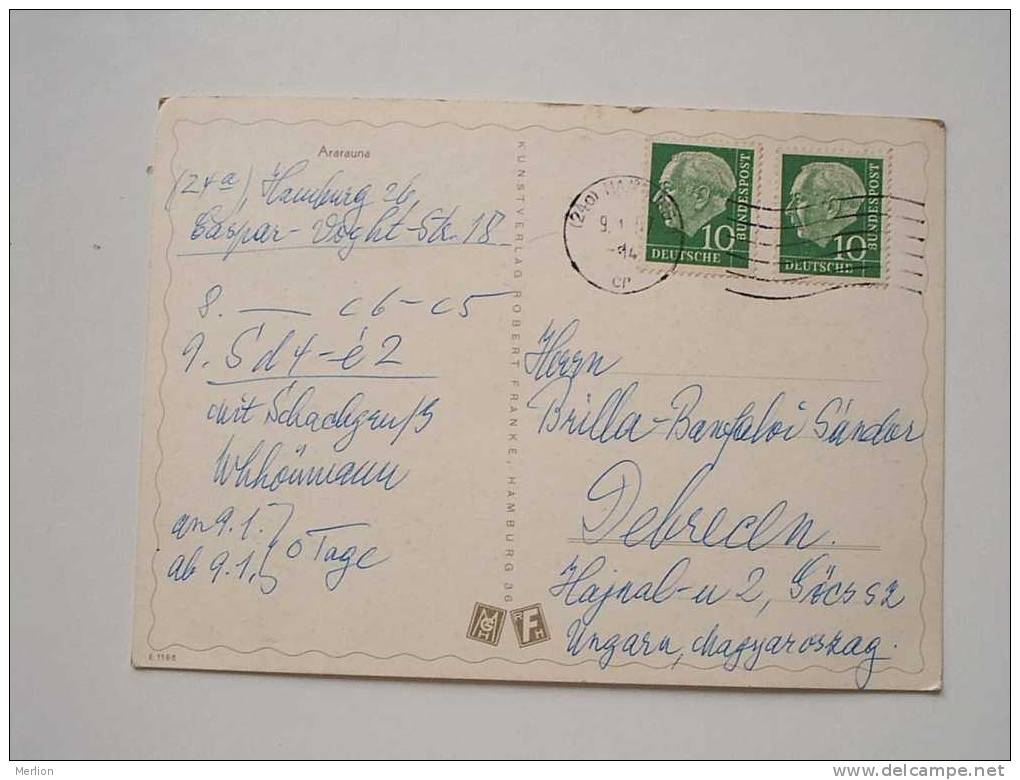 Ararauna
(24a), Hamburg 26,
Caspar-Voght-Str. 18
8. — c6-c5
9. Sd4-e2
mit Schachgruß
an 9.1.
ab 9.1. 0 Tage
E 1166
KUNSTVERLAG ROBERT FRANKE, HAMBURG 36
(24a) HAMBURG
9. 1.
-14
cr
10
DEUTSCHE
BUNDESPOST
10
DEUTSCHE
BUNDESPOST
Herrn
Brilla-Banfalvi Sándor
Debrecen.
Hajnal-u 2,
Ungarn, Magyarország.
Merlion
http://www.delcampe.net